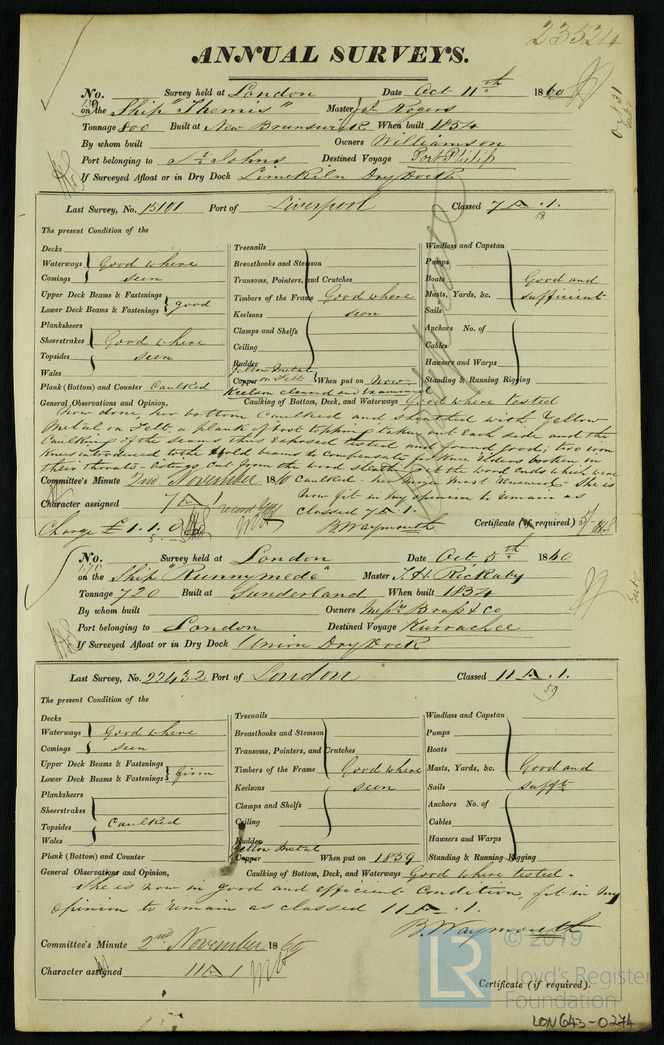 23524
ANNUAL SURVEYS.
No. Survey held at London Date Oct 11th 1860
on the Ship "Themis" Master J. Rogers
Tonnage 800 Built at New Brunswick When built 1854
By whom built Owners Williamson
Port belonging to St. Johns Destined Voyage Port Philip
If Surveyed Afloat or in Dry Dock Limekiln Dry Dock
Last Survey, No. 13101 Port of Liverpool Classed 7 A .1.
58
The present Condition of the
Decks
Waterways Good where
Comings seen
Upper Deck Beams & Fastenings
Lower Deck Beams & Fastenings good
Planksheers
Sheerstrakes Good where
Topsides seen
Wales
Plank (Bottom) and Counter Caulked
Treenails
Breasthooks and Stemson
Transoms, Pointers, and Crutches
Timbers of the Frame Good where
Keelsons seen
Clamps and Shelfs
Ceiling
Rudder
Yellow Metal
Copper on Felt When put on Now
Keelson cleared and examined
Windlass and Capstan
Pumps
Boats Good and
Masts, Yards, &c. sufficient
Sails
Anchors No. of
Cables
Hawsers and Warps
Standing & Running Rigging
General Observations and Opinion, Caulking of Bottom, Deck, and Waterways Good where tested
now done, her bottom caulked and sheathed with Yellow
Metal on Felt, a plank of topping taken out each side and the
caulking of the seams thus exposed tested and found good; two iron
knees introduced to the hold beams to compensate for knee riders broken in
their throats - listings cut from the wood sheath the wood ends which were
Committee's Minute 2nd November 1860 caulked - her renewed - She is
now fit in my opinion to remain as
Character assigned 7 A 1 classed 7 A 1.
Charge £1.1.0 B. Waymouth Certificate (if required) 5/-
No. Survey held at London Date Oct 5th 1860
on the Ship "Runnymede" Master J. H. Rickaby
Tonnage 720 Built at Sunderland When built 1854
By whom built Owners Messrs Brass & Co
Port belonging to London Destined Voyage Kurrachee
If Surveyed Afloat or in Dry Dock Union Dry Dock
Last Survey, No. 22432 Port of London Classed 11 A .1.
59
The present Condition of the
Decks
Waterways Good where
Comings seen
Upper Deck Beams & Fastenings
Lower Deck Beams & Fastenings firm
Planksheers
Sheerstrakes
Topsides Caulked
Wales
Plank (Bottom) and Counter
Treenails
Breasthooks and Stemson
Transoms, Pointers, and Crutches
Timbers of the Frame Good where
Keelsons seen
Clamps and Shelfs
Ceiling
Rudder
Yellow Metal
Copper When put on 1859
Windlass and Capstan
Pumps
Boats
Masts, Yards, &c. Good and
Sails sufft
Anchors No. of
Cables
Hawsers and Warps
Standing & Running Rigging
General Observations and Opinion, Caulking of Bottom, Deck, and Waterways Good where tested.
She is now in good and efficient condition, fit in my
opinion to remain as classed 11 A .1.
B. Waymouth
Committee's Minute 2nd November 1860
Character assigned 11 A 1
Certificate (if required).
© 2019
LR
Lloyd's Register
Foundation
LON643-0274